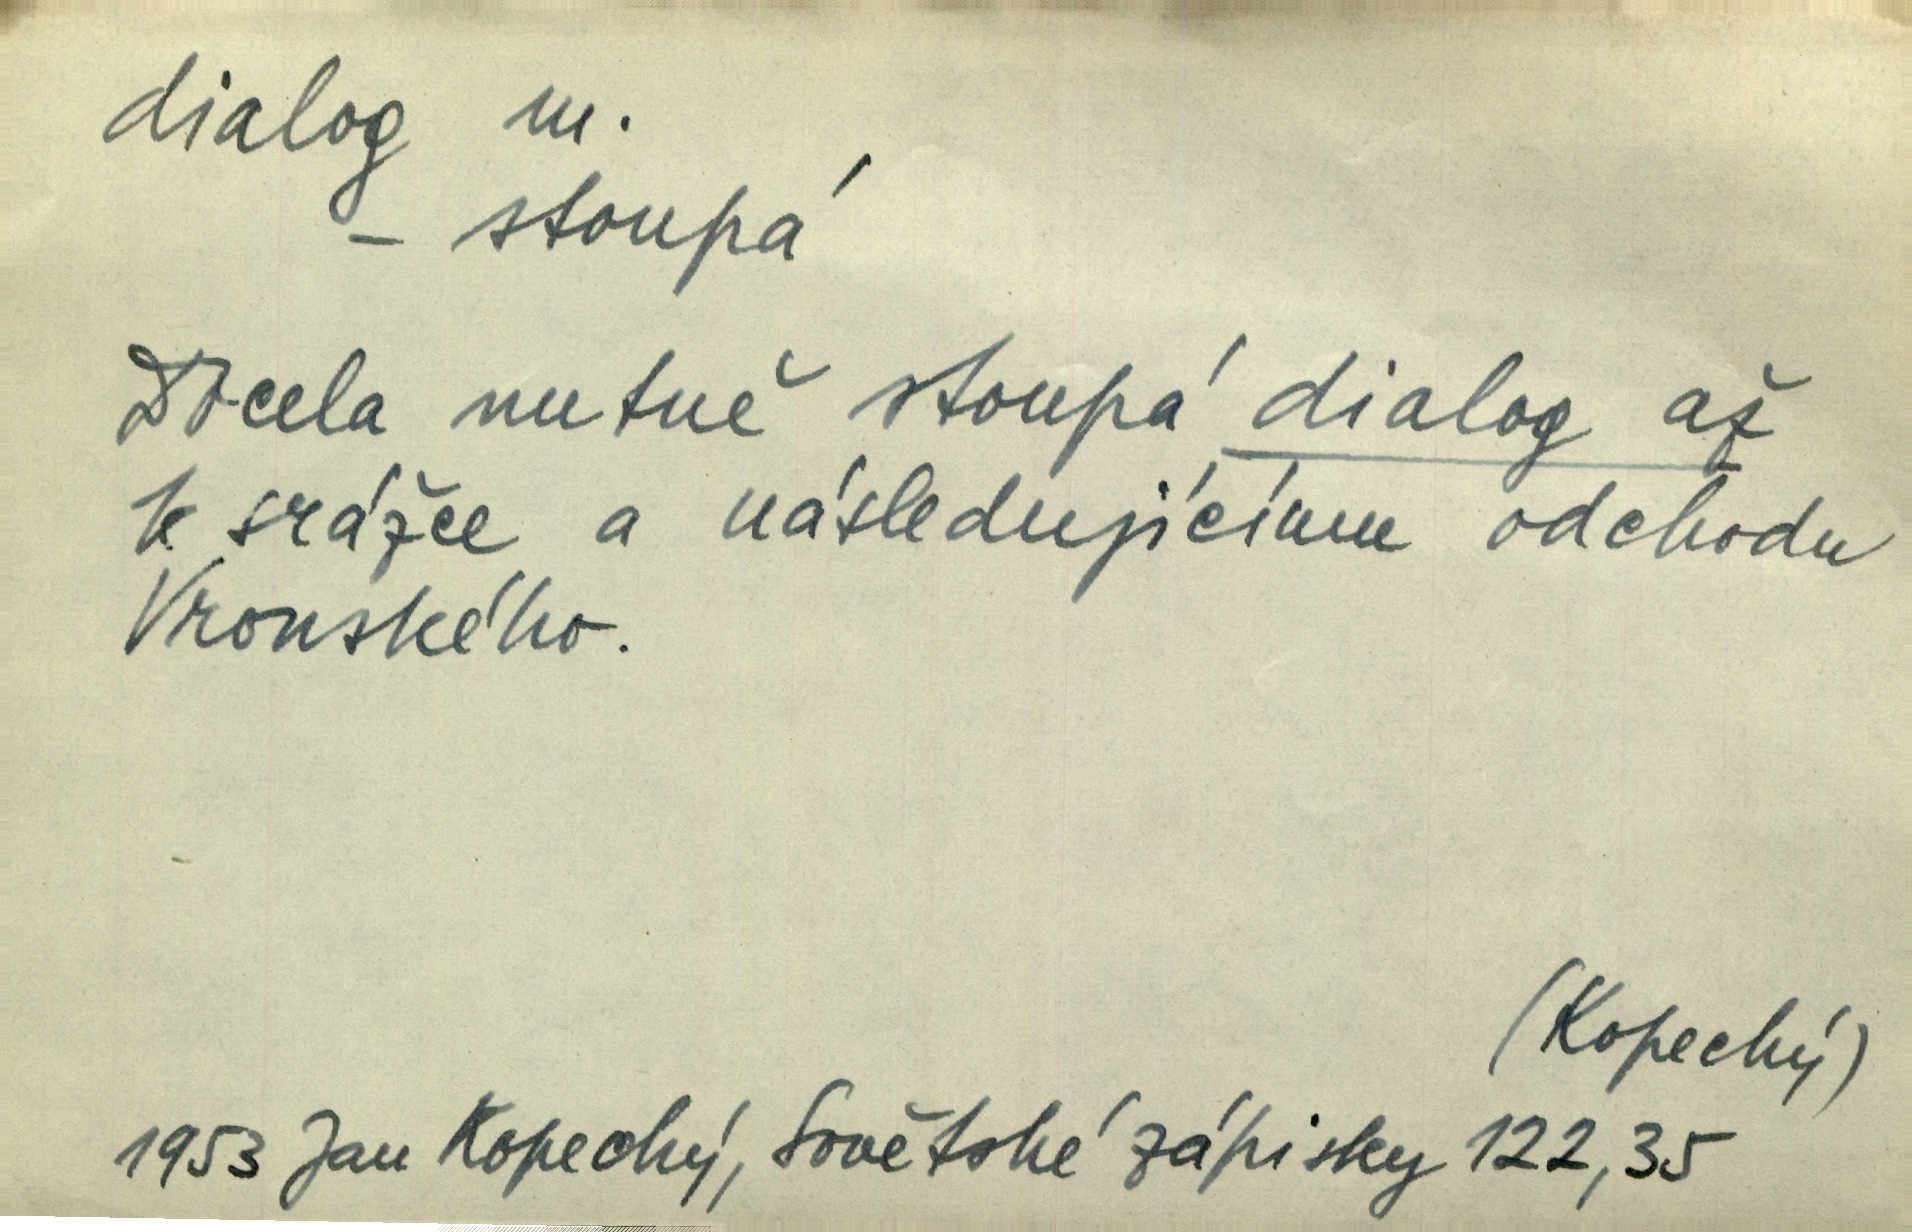 dialog m.
– stoupá
Docela nutně stoupá dialog až
k srážce a následujícímu odchodu
Vronského.
(Kopecký)
1953 Jan Kopecký, Sovětské zápisky 122,35